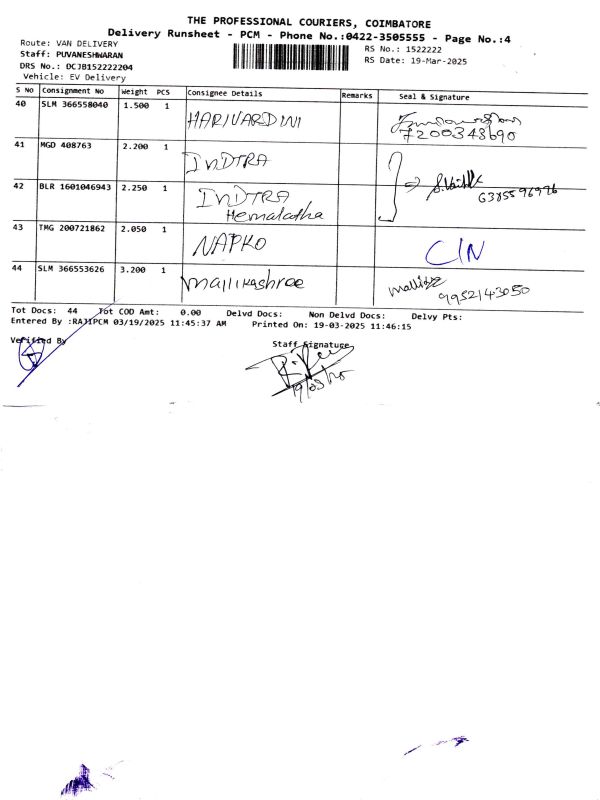 THE PROFESSIONAL COURIERS, COIMBATORE
Delivery Runsheet - PCM - Phone No.:0422-3505555 - Page No.:4
Route: VAN DELIVERY
Staff: PUVANESHWARAN
DRS No.: DCJB152222204
Vehicle: EV Delivery
RS No.: 1522222
RS Date: 19-Mar-2025
S No Consignment No Weight PCS Consignee Details Remarks Seal & Signature
40 SLM 366558040 1.500 1 HARIVARDINI
7200348690
41 MGD 408763 2.200 1 INDTRA
42 BLR 1601046943 2.250 1 INDTRA
Hemalatha
6385596976
43 TMG 200721862 2.050 1 NAPKO C/N
44 SLM 366553626 3.200 1 Mallikashree
9952143050
Tot Docs: 44 Tot COD Amt: 0.00 Delvd Docs: Non Delvd Docs: Delvy Pts:
Entered By :RAJIPCM 03/19/2025 11:45:37 AM Printed On: 19-03-2025 11:46:15
Verified By Staff Signature
19/03/25